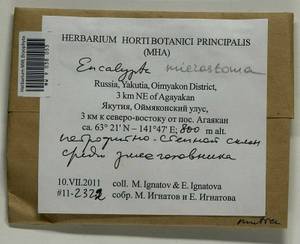 HERBARIUM HORTI BOTANICI PRINCIPALIS
(MHA)
Encalypta microstoma
Russia, Yakutia, Oimyakon District,
3 km NE of Agayakan
Якутия, Оймяконский улус,
3 км к северо-востоку от пос. Агаякан
ca. 63° 21' N – 141°47' E; 800 m alt.
петрофитно-степной склон
среди
10.VII.2011 coll. M. Ignatov & E. Ignatova
#11-2322 собр. М. Игнатов и Е. Игнатова